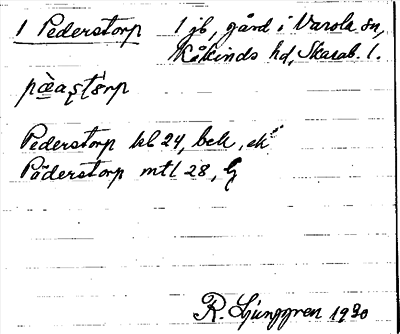 1 Pederstorp 1 jb, gård i Varola sn,
Kåkinds hd, Skarab. l.
pæ̀astårp
Pederstorp kb 24, bek, ek
Päderstorp mtl 28, G
R. Ljunggren 1930